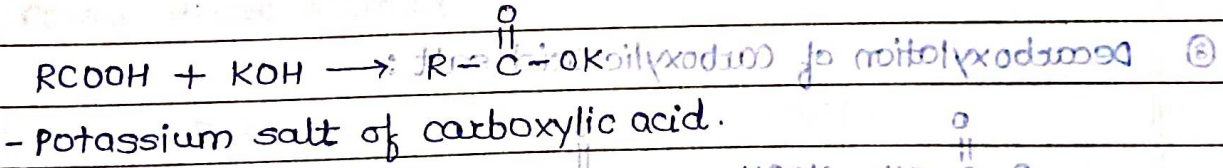 O
||
RCOOH + KOH → R - C - OK
- Potassium salt of carboxylic acid.